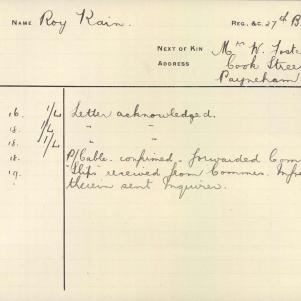 NAME Roy Kain. REG. &C. 27th B
NEXT OF KIN Mrs W. Foste
ADDRESS Cook Stree
Payneham
16. 1/4 Letter acknowledged.
18. 1/4 " "
18. 1/4 " "
18. P/Cable. confirmed. forwarded Com
19. "Slip" received from Commes. Info
therein sent Inquirer.